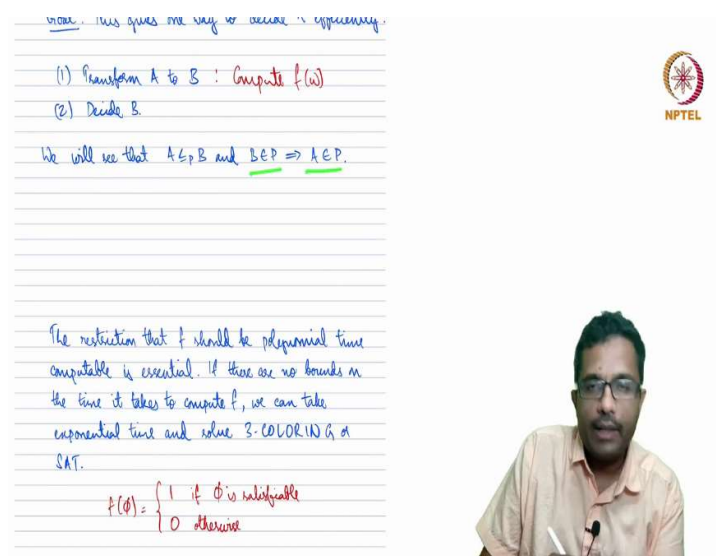 Goal: This gives one way to decide A efficiently.
(1) Transform A to B : Compute f(w)
(2) Decide B.
We will see that A ≤p B and B ∈ P ⇒ A ∈ P.
The restriction that f should be polynomial time
computable is essential. If there are no bounds on
the time it takes to compute f, we can take
exponential time and solve 3-COLORING or
SAT.
f(ϕ) = { 1 if ϕ is satisfiable
0 otherwise
NPTEL